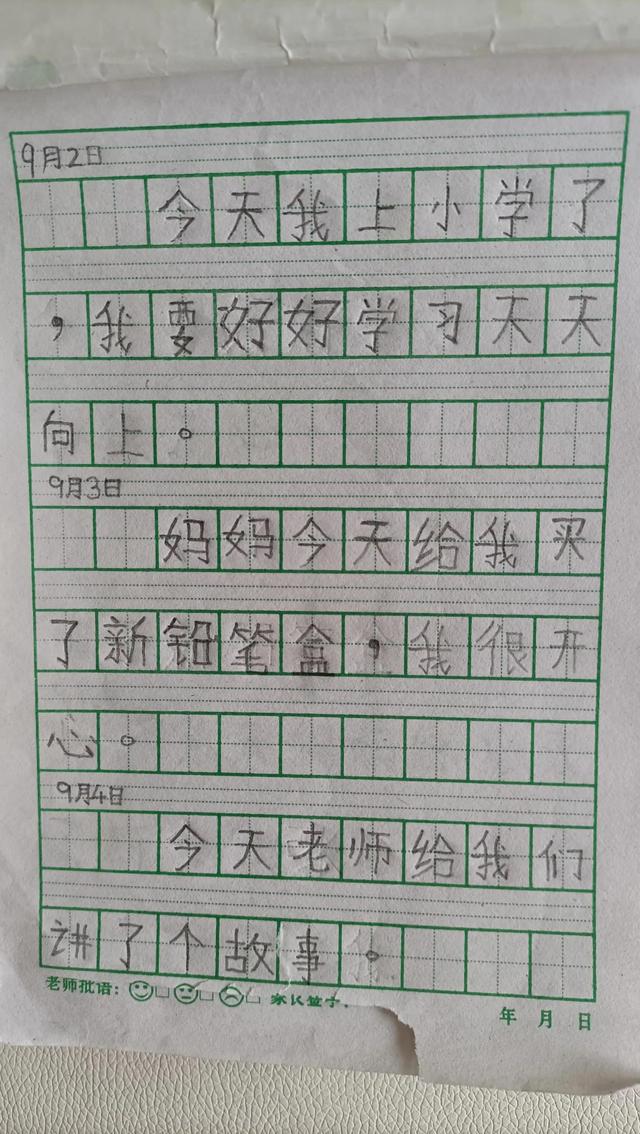 9月2日
今天我上小学了
，我要好好学习天天
向上。
9月3日
妈妈今天给我买
了新铅笔盒，我很开
心。
9月4日
今天老师给我们
讲了个故事。
老师批语： 家长签字：
年 月 日